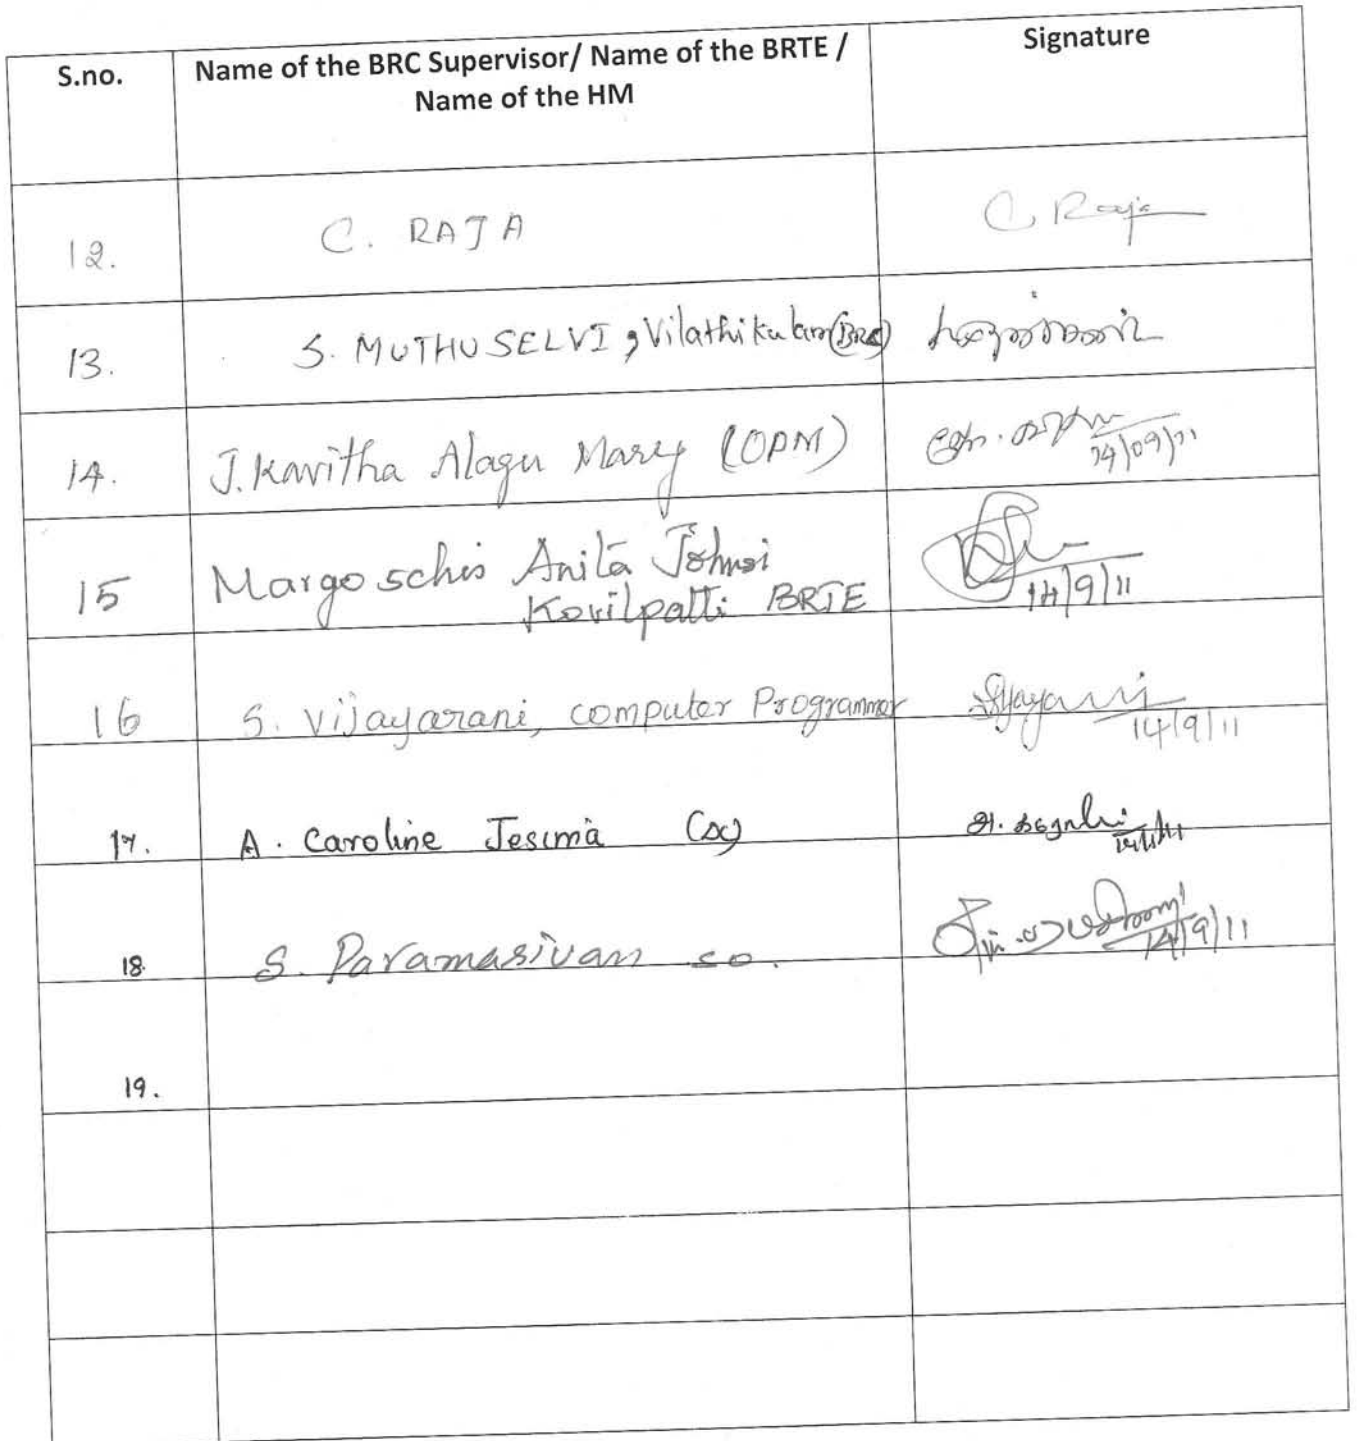 S.no. Name of the BRC Supervisor/ Name of the BRTE / Signature
Name of the HM
12. C. RAJA C Raja
13. S. MUTHUSELVI, Vilathikulam(BRC)
14. J. Kavitha Alagu Mary (OPM)
14/09/11
15 Margoschis Anita Johnsi
Kovilpatti BRTE 14/9/11
16 S. Vijayarani, computer Programmer
14/9/11
17. A. Caroline Jesima
18 S. Paramasivan so.
14/9/11
19.